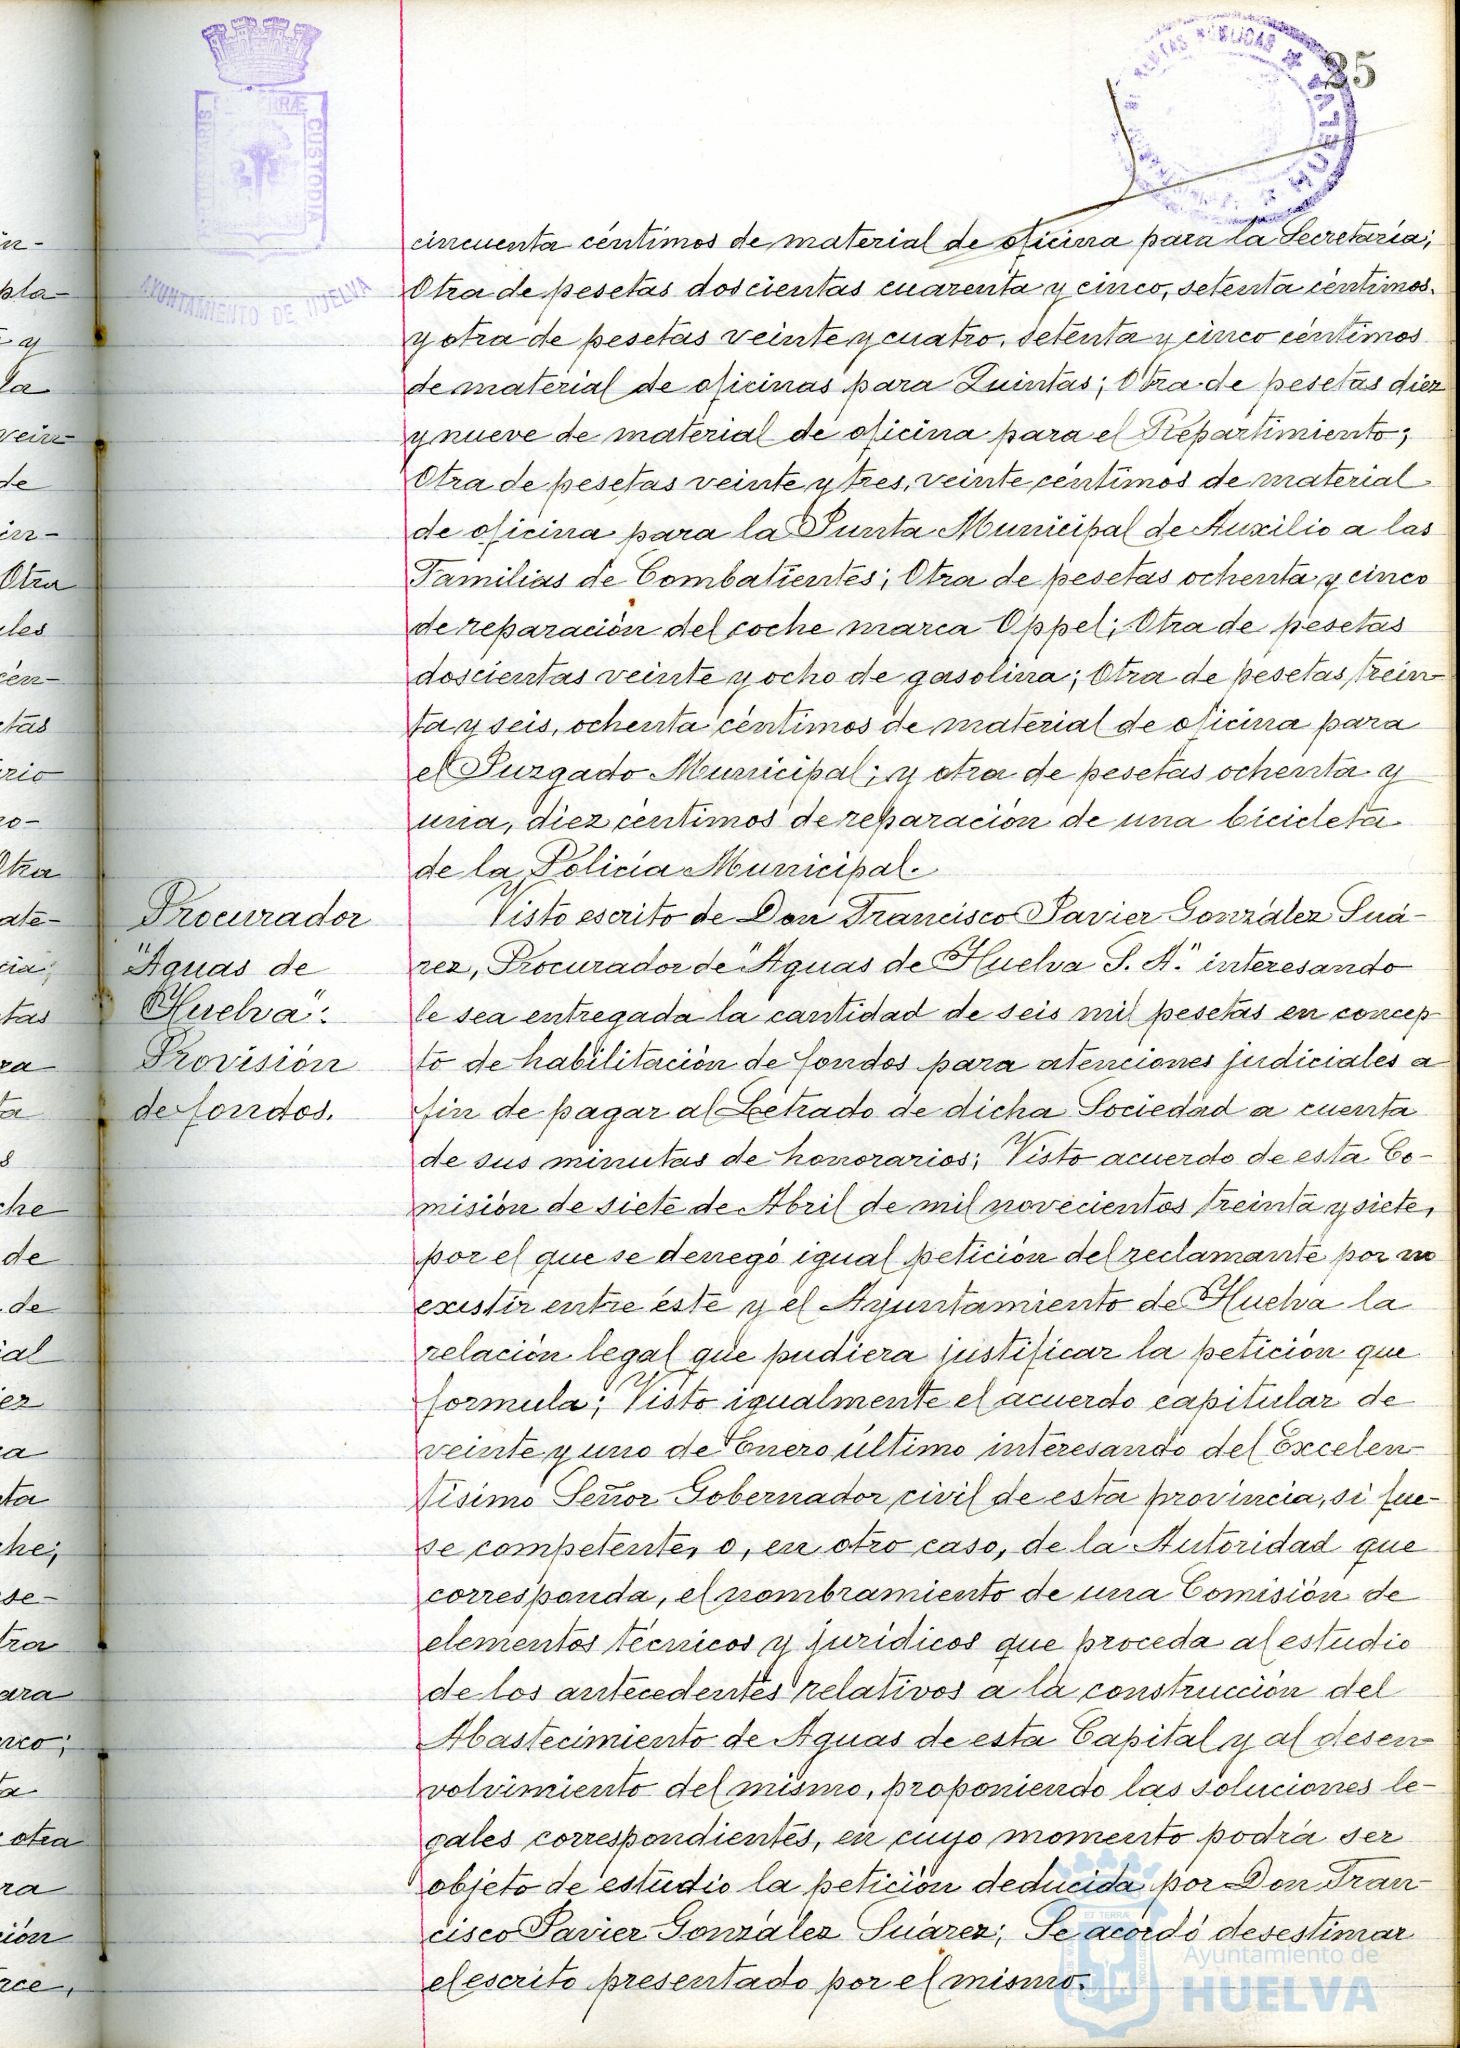 35
PORTUS MARIS ET TERRÆ CUSTODIA
AYUNTAMIENTO DE HUELVA
RENTAS PÚBLICAS * HUELVA *
cincuenta céntimos de material de oficina para la Secretaría;
Otra de pesetas doscientas cuarenta y cinco, setenta céntimos.
y otra de pesetas veinte y cuatro, setenta y cinco céntimos
de material de oficinas para Quintas; Otra de pesetas diez
y nueve de material de oficina para el Repartimiento;
Otra de pesetas veinte y tres, veinte céntimos de material
de oficina para la Junta Municipal de Auxilio a las
Familias de Combatientes; Otra de pesetas ochenta y cinco
de reparación del coche marca Oppel; Otra de pesetas
doscientas veinte y ocho de gasolina; Otra de pesetas trein-
ta y seis, ochenta céntimos de material de oficina para
el Juzgado Municipal; y otra de pesetas ochenta y
una, diez céntimos de reparación de una bicicleta
de la Policía Municipal.
Procurador
"Aguas de
Huelva":
Provisión
de fondos.
Visto escrito de Don Francisco Javier González Suá-
rez, Procurador de "Aguas de Huelva S. A." interesando
le sea entregada la cantidad de seis mil pesetas en concep-
to de habilitación de fondos para atenciones judiciales a
fin de pagar al Letrado de dicha Sociedad a cuenta
de sus minutas de honorarios; Visto acuerdo de esta Co-
misión de siete de Abril de mil novecientos treinta y siete,
por el que se denegó igual petición del reclamante por no
existir entre éste y el Ayuntamiento de Huelva la
relación legal que pudiera justificar la petición que
formula; Visto igualmente el acuerdo capitular de
veinte y uno de Enero último interesando del Excelen-
tísimo Señor Gobernador civil de esta provincia, si fue-
se competente, o, en otro caso, de la Autoridad que
corresponda, el nombramiento de una Comisión de
elementos técnicos y jurídicos que proceda al estudio
de los antecedentes relativos a la construcción del
Abastecimiento de Aguas de esta Capital y al desen-
volvimiento del mismo, proponiendo las soluciones le-
gales correspondientes, en cuyo momento podrá ser
objeto de estudio la petición deducida por Don Fran-
cisco Javier González Suárez; Se acordó desestimar
el escrito presentado por el mismo.
Ayuntamiento de
HUELVA